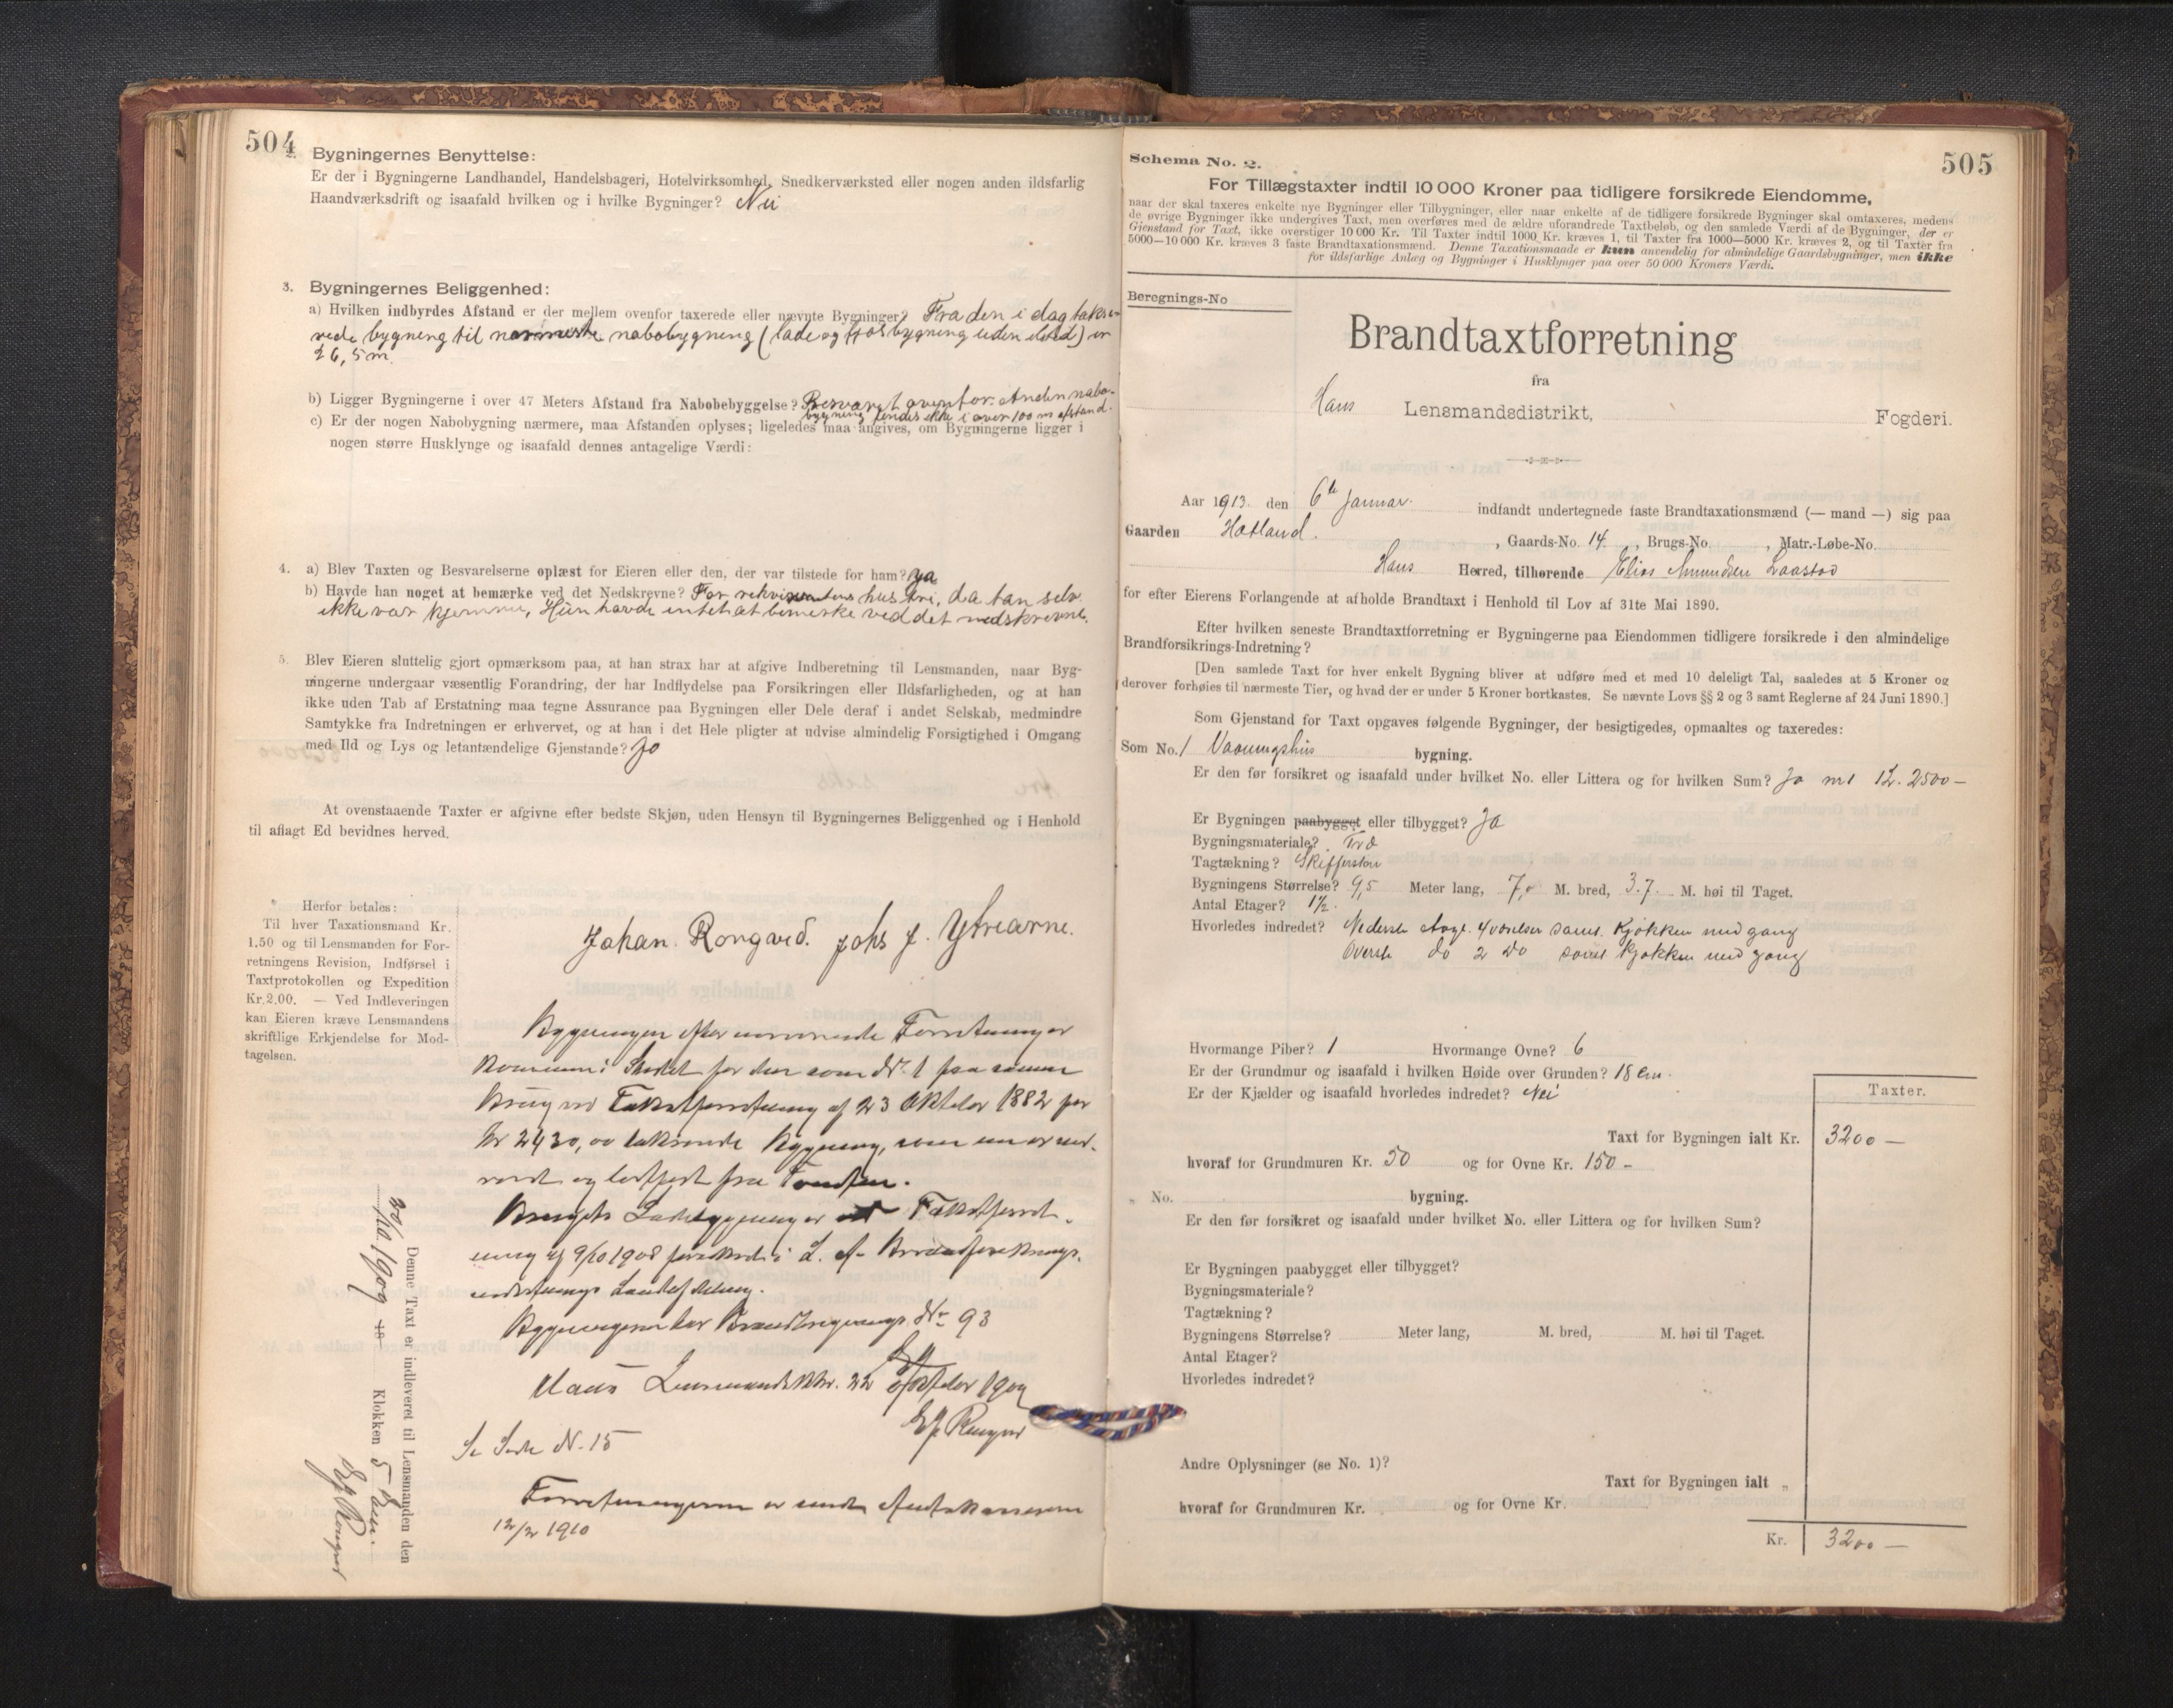 504
2. Bygningernes Benyttelse:
Er der i Bygningerne Landhandel, Handelsbageri, Hotelvirksomhed, Snedkerværksted eller nogen anden ildsfarlig
Haandværksdrift og isaafald hvilken og i hvilke Bygninger? Nei
3. Bygningernes Beliggenhed:
a) Hvilken indbyrdes Afstand er der mellem ovenfor taxerede eller nævnte Bygninger? Fra den i dag takse-
rede bygning til nærmeste nabobygning (lade og fjøsbygning uden ildsted) er
26,5 m.
b) Ligger Bygningerne i over 47 Meters Afstand fra Nabobebyggelse? Besvaret ovenfor. Anden nabo-
bygning findes ikke i over 100 m afstand.
c) Er der nogen Nabobygning nærmere, maa Afstanden oplyses; ligeledes maa angives, om Bygningerne ligger i
nogen større Husklynge og isaafald dennes antagelige Værdi:
4. a) Blev Taxten og Besvarelserne oplæst for Eieren eller den, der var tilstede for ham? Ja
b) Havde han noget at bemærke ved det Nedskrevne? For rekvirentens hustru, da han selv
ikke var hjemme, Hun havde intet at bemerke ved det nedskrevne.
5. Blev Eieren sluttelig gjort opmærksom paa, at han strax har at afgive Indberetning til Lensmanden, naar Byg-
ningerne undergaar væsentlig Forandring, der har Indflydelse paa Forsikringen eller Ildsfarligheden, og at han
ikke uden Tab af Erstatning maa tegne Assurance paa Bygningen eller Dele deraf i andet Selskab, medmindre
Samtykke fra Indretningen er erhvervet, og at han i det Hele pligter at udvise almindelig Forsigtighed i Omgang
med Ild og Lys og letantændelige Gjenstande? Jo
At ovenstaaende Taxter er afgivne efter bedste Skjøn, uden Hensyn til Bygningernes Beliggenhed og i Henhold
til aflagt Ed bevidnes herved.
Herfor betales:
Til hver Taxationsmand Kr.
1.50 og til Lensmanden for For-
retningens Revision, Indførsel i
Taxtprotokollen og Expedition
Kr. 2.00. — Ved Indleveringen
kan Eieren kræve Lensmandens
skriftlige Erkjendelse for Mod-
tagelsen.
Johan. Rongved. Johs J. Ytrearne.
Bygningen efter nærværende Forretning er
kommen i Stedet for den som Nr. 1 paa samme
Brug ved Takstforretning af 23 Oktober 1882 for
Kr 2430,00 takserede Bygning, som nu er ned-
revet og bortført fra Tomten.
Brugets Ladebygning er ved Takstforret-
ning af 9/10 1908 forsikret i
Landafdeling.
Bygningerne har Nr. 93
Haus Lensmandsktr. 22 oktober 1909
Se Side N. 15
Forretningerne er sendt Amtskassereren
12/2 1910
Denne Taxt er indleveret til Lensmanden den
22/10 1909 18 Klokken 5 Em.
505
Schema No. 2.
For Tillægstaxter indtil 10 000 Kroner paa tidligere forsikrede Eiendomme,
naar der skal taxeres enkelte nye Bygninger eller Tilbygninger, eller naar enkelte af de tidligere forsikrede Bygninger skal omtaxeres, medens
de øvrige Bygninger ikke undergives Taxt, men overføres med de ældre uforandrede Taxtbeløb, og den samlede Værdi af de Bygninger, der er
Gjenstand for Taxt, ikke overstiger 10 000 Kr. Til Taxter indtil 1000 Kr. kræves 1, til Taxter fra 1000—5000 Kr. kræves 2, og til Taxter fra
5000—10 000 Kr. kræves 3 faste Brandtaxationsmænd. Denne Taxationsmaade er kun anvendelig for almindelige Gaardsbygninger, men ikke
for ildsfarlige Anlæg og Bygninger i Husklynger paa over 50 000 Kroners Værdi.
Beregnings-No
Brandtaxtforretning
fra
Haus Lensmandsdistrikt, Fogderi.
Aar 1913. den 6te Januar. indfandt undertegnede faste Brandtaxationsmænd (— mand —) sig paa
Gaarden Hatland. , Gaards-No. 14. , Brugs-No. , Matr.-Løbe-No.
Haus Herred, tilhørende Elias Amundsen Laastad
for efter Eierens Forlangende at afholde Brandtaxt i Henhold til Lov af 31te Mai 1890.
Efter hvilken seneste Brandtaxtforretning er Bygningerne paa Eiendommen tidligere forsikrede i den almindelige
Brandforsikrings-Indretning?
[Den samlede Taxt for hver enkelt Bygning bliver at udføre med et med 10 deleligt Tal, saaledes at 5 Kroner og
derover forhøies til nærmeste Tier, og hvad der er under 5 Kroner bortkastes. Se nævnte Lovs §§ 2 og 3 samt Reglerne af 24 Juni 1890.]
Som Gjenstand for Taxt opgaves følgende Bygninger, der besigtigedes, opmaaltes og taxeredes:
Som No. 1 Vaaningshus bygning.
Er den før forsikret og isaafald under hvilket No. eller Littera og for hvilken Sum? Ja nr 1 2500 —
Er Bygningen paabygget eller tilbygget? Ja
Bygningsmateriale? Træ
Tagtækning? Skiffersten
Bygningens Størrelse? 9,5 Meter lang, 7,0 M. bred, 3.7. M. høi til Taget.
Antal Etager? 1½.
Hvorledes indrettet? Nederste etage. 4 værelser samt. kjøkken med gang
Øverste do 2 do samt kjøkken med gang
Hvormange Piber? 1 Hvormange Ovne? 6
Er der Grundmur og isaafald i hvilken Høide over Grunden? 18 cm.
Er der Kjælder og isaafald hvorledes indredet? Nei
Taxter.
Taxt for Bygningen ialt Kr. 3200 —
hvoraf for Grundmuren Kr. 50 og for Ovne Kr. 150 -
„ No. bygning.
Er den før forsikret og isaafald under hvilket No. eller Littera og for hvilken Sum?
Er Bygningen paabygget eller tilbygget?
Bygningsmateriale?
Tagtækning?
Bygningens Størrelse? Meter lang, M. bred, M. høi til Taget.
Antal Etager?
Hvorledes indredet?
Andre Oplysninger (se No. 1)?
Taxt for Bygningen ialt „
hvoraf for Grundmuren Kr. og for Ovne Kr.
Kr. 3200 —